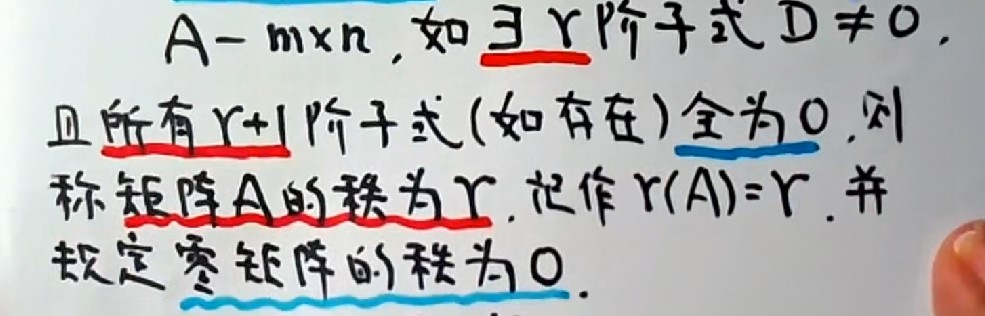 A－m×n，如∃r阶子式D≠0，
且所有r+1阶子式(如存在)全为0，则
称矩阵A的秩为r，记作r(A)=r．并
规定零矩阵的秩为0．